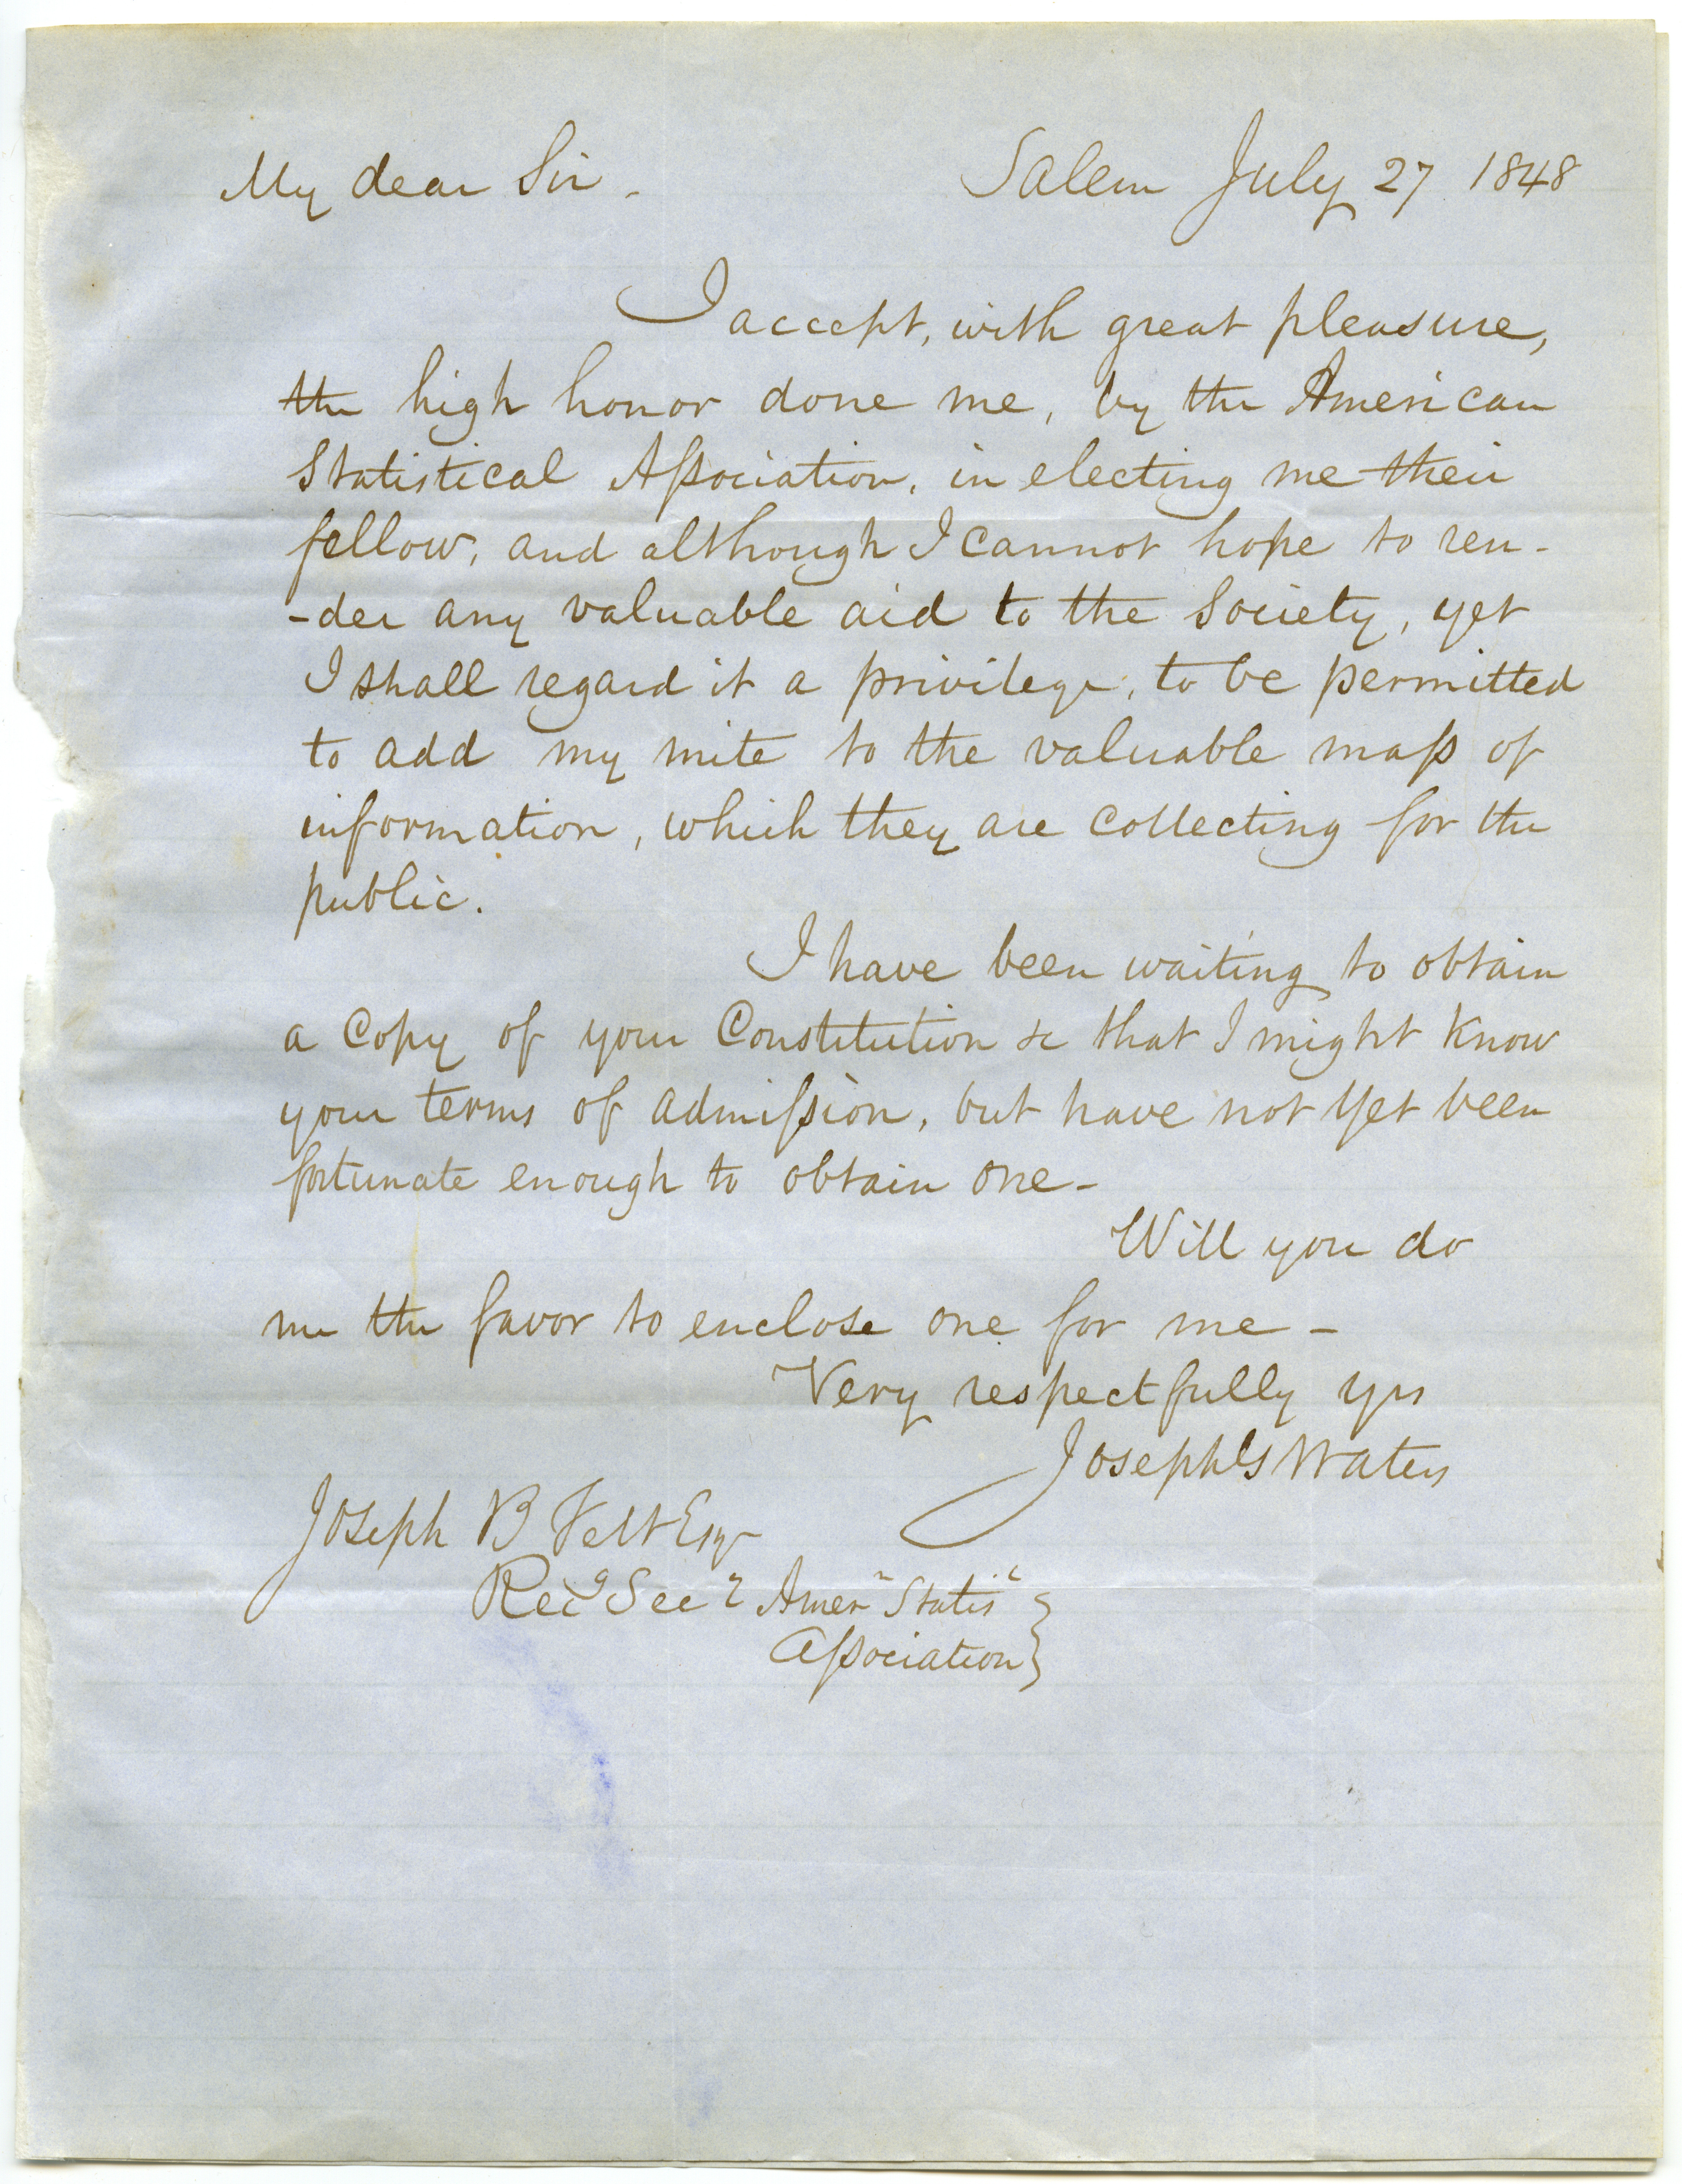 My dear Sir - Salem July 27 1848
I accept, with great pleasure,
the high honor done me, by the American
Statistical Aſsociation, in electing me their
fellow, and although I cannot hope to ren-
-der any valuable aid to the Society, yet
I shall regard it a privilege, to be permitted
to add my mite to the valuable maſs of
information, which they are collecting for the
public.
I have been waiting to obtain
a Copy of your Constitution &c that I might Know
your terms of admiſsion, but have not yet been
fortunate enough to obtain one -
Will you do
me the favor to enclose one for me -
Very respectfully yrs
Joseph G Waters
Joseph B Felt Esqr
Recg Secy Amern Statisl
Aſsociation